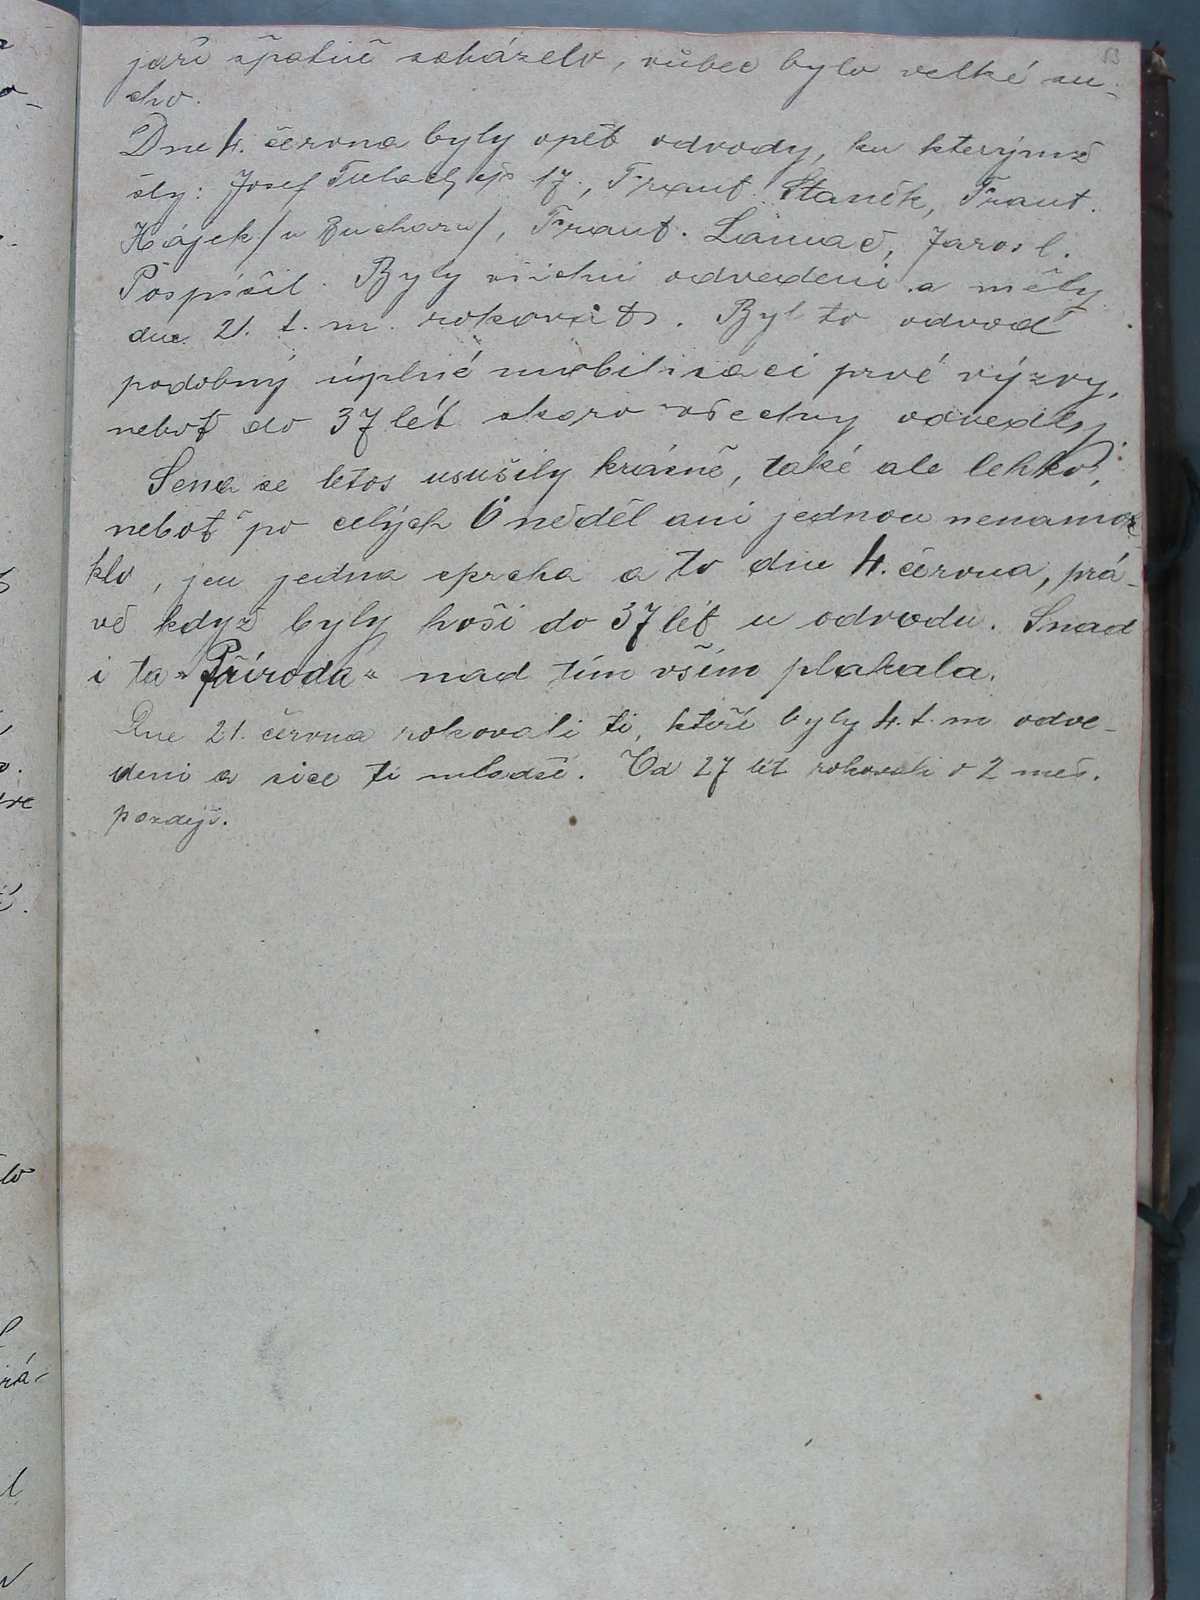 13
jaří špatně scházelo, vůbec bylo velké su-
cho.
Dne 4. června byly opět odvody, ku kterýmž
šly: Josef čp 17., Frant. Staněk, Frant.
Hájek /u Zucharu/, Frant. Lamač, Jarosl.
Pospíšil. Byly všichni odvedeni a měly
dne 21. t. m. rokovat. Byl to odvod
podobný úplné mobilisaci prvé výzvy,
neboť do 37 lét skoro všechny odvedly.
Sena se letos usušily krásně, také ale lehko,
neboť po celých 6 neděl ani jednou nenamo-
klo, jen jedna sprcha a to dne 4. června, prá-
vě když byly hoši do 37 lét u odvodu. Snad
i ta „Příroda“ nad tím vším plakala.
Dne 21. června rokovali ti, kteří byly 4. t. m odve-
deni a sice ti mladší. Od 27 let rokovali o 2 měs.
pozdějí.